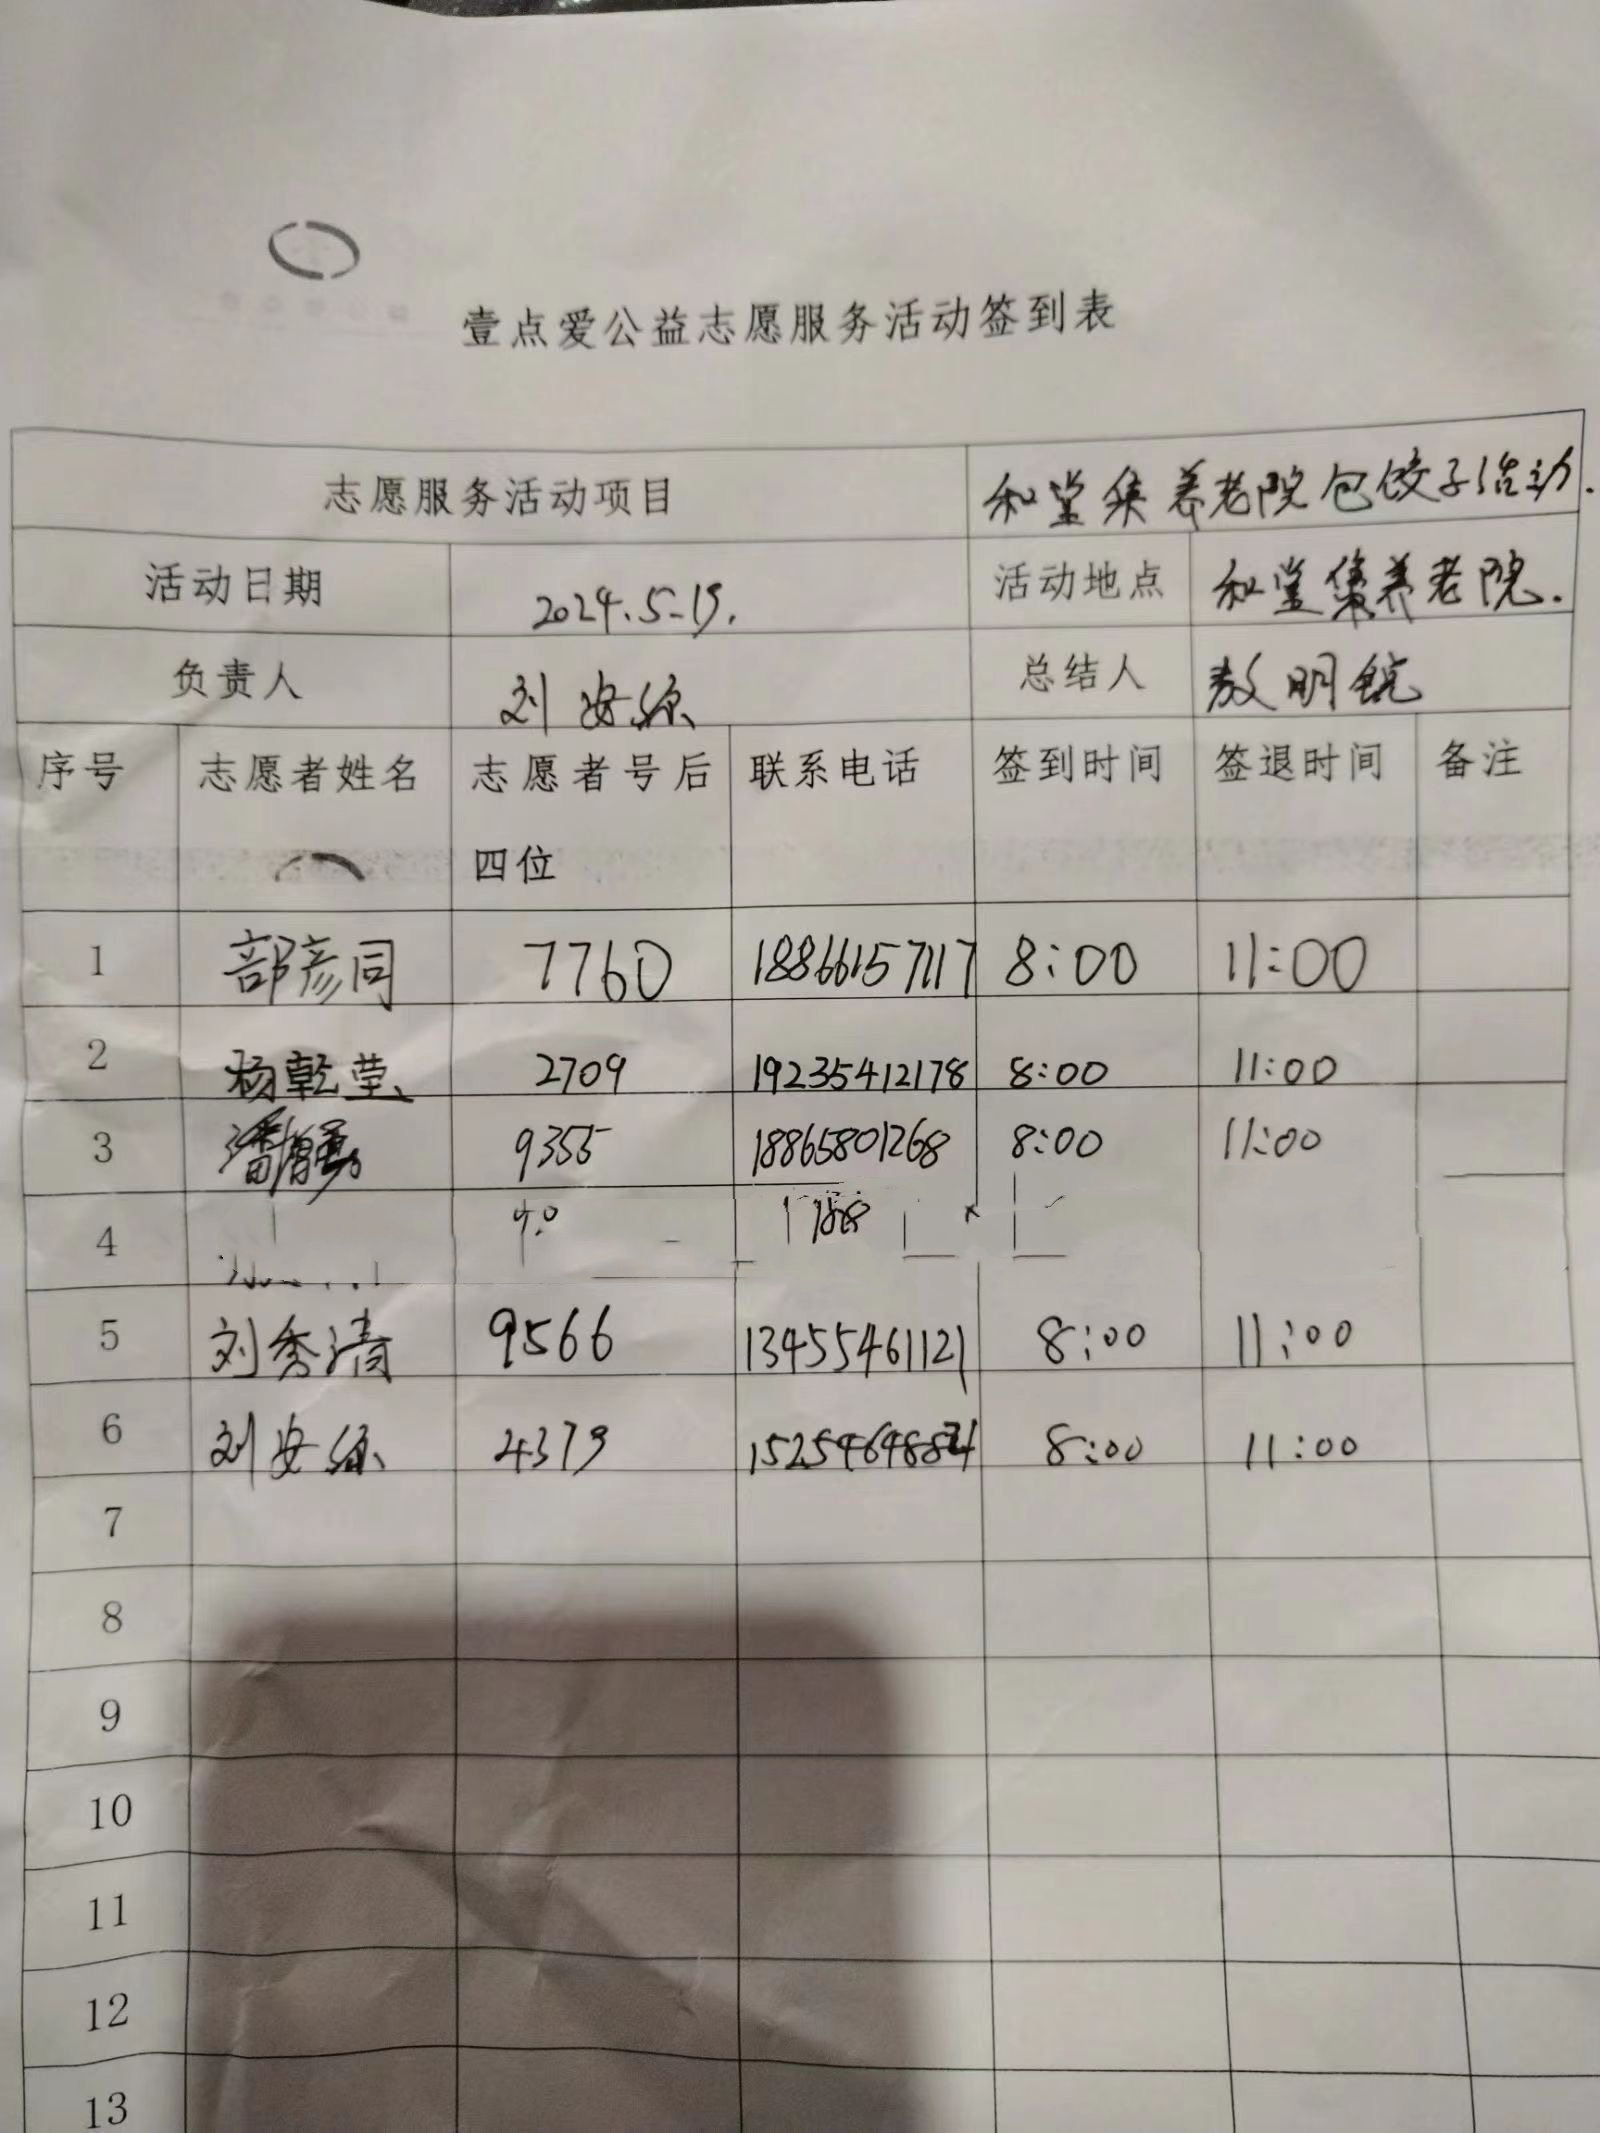 壹点爱公益志愿服务活动签到表
志愿服务活动项目 和堂集养老院包饺子活动.
活动日期 2024.5-19. 活动地点 和堂集养老院.
负责人 刘安源 总结人 明锐
序号 志愿者姓名 志愿者号后四位 联系电话 签到时间 签退时间 备注
1 部彦同 7760 18866157117 8:00 11:00
2 杨乾莹 2709 19235412178 8:00 11:00
3 潘 9355 18865801268 8:00 11:00
4
5 刘秀清 9566 13455461121 8:00 11:00
6 刘安源 4379 8:00 11:00
7
8
9
10
11
12
13